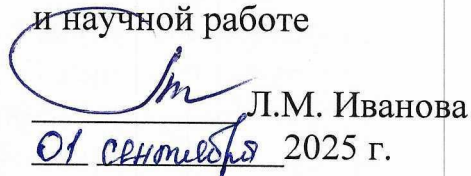 и научной работе
Л.М. Иванова
01 сентября 2025 г.